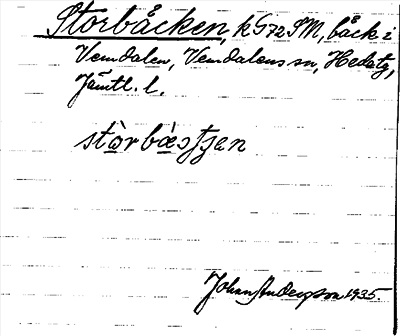 Storbäcken, kG72SM, bäck i
Vemdalen, Vemdalens sn, Hedetg,
Jämtl. l.
stòrbæ̀sʃʃen
Johan Anderson 1935.